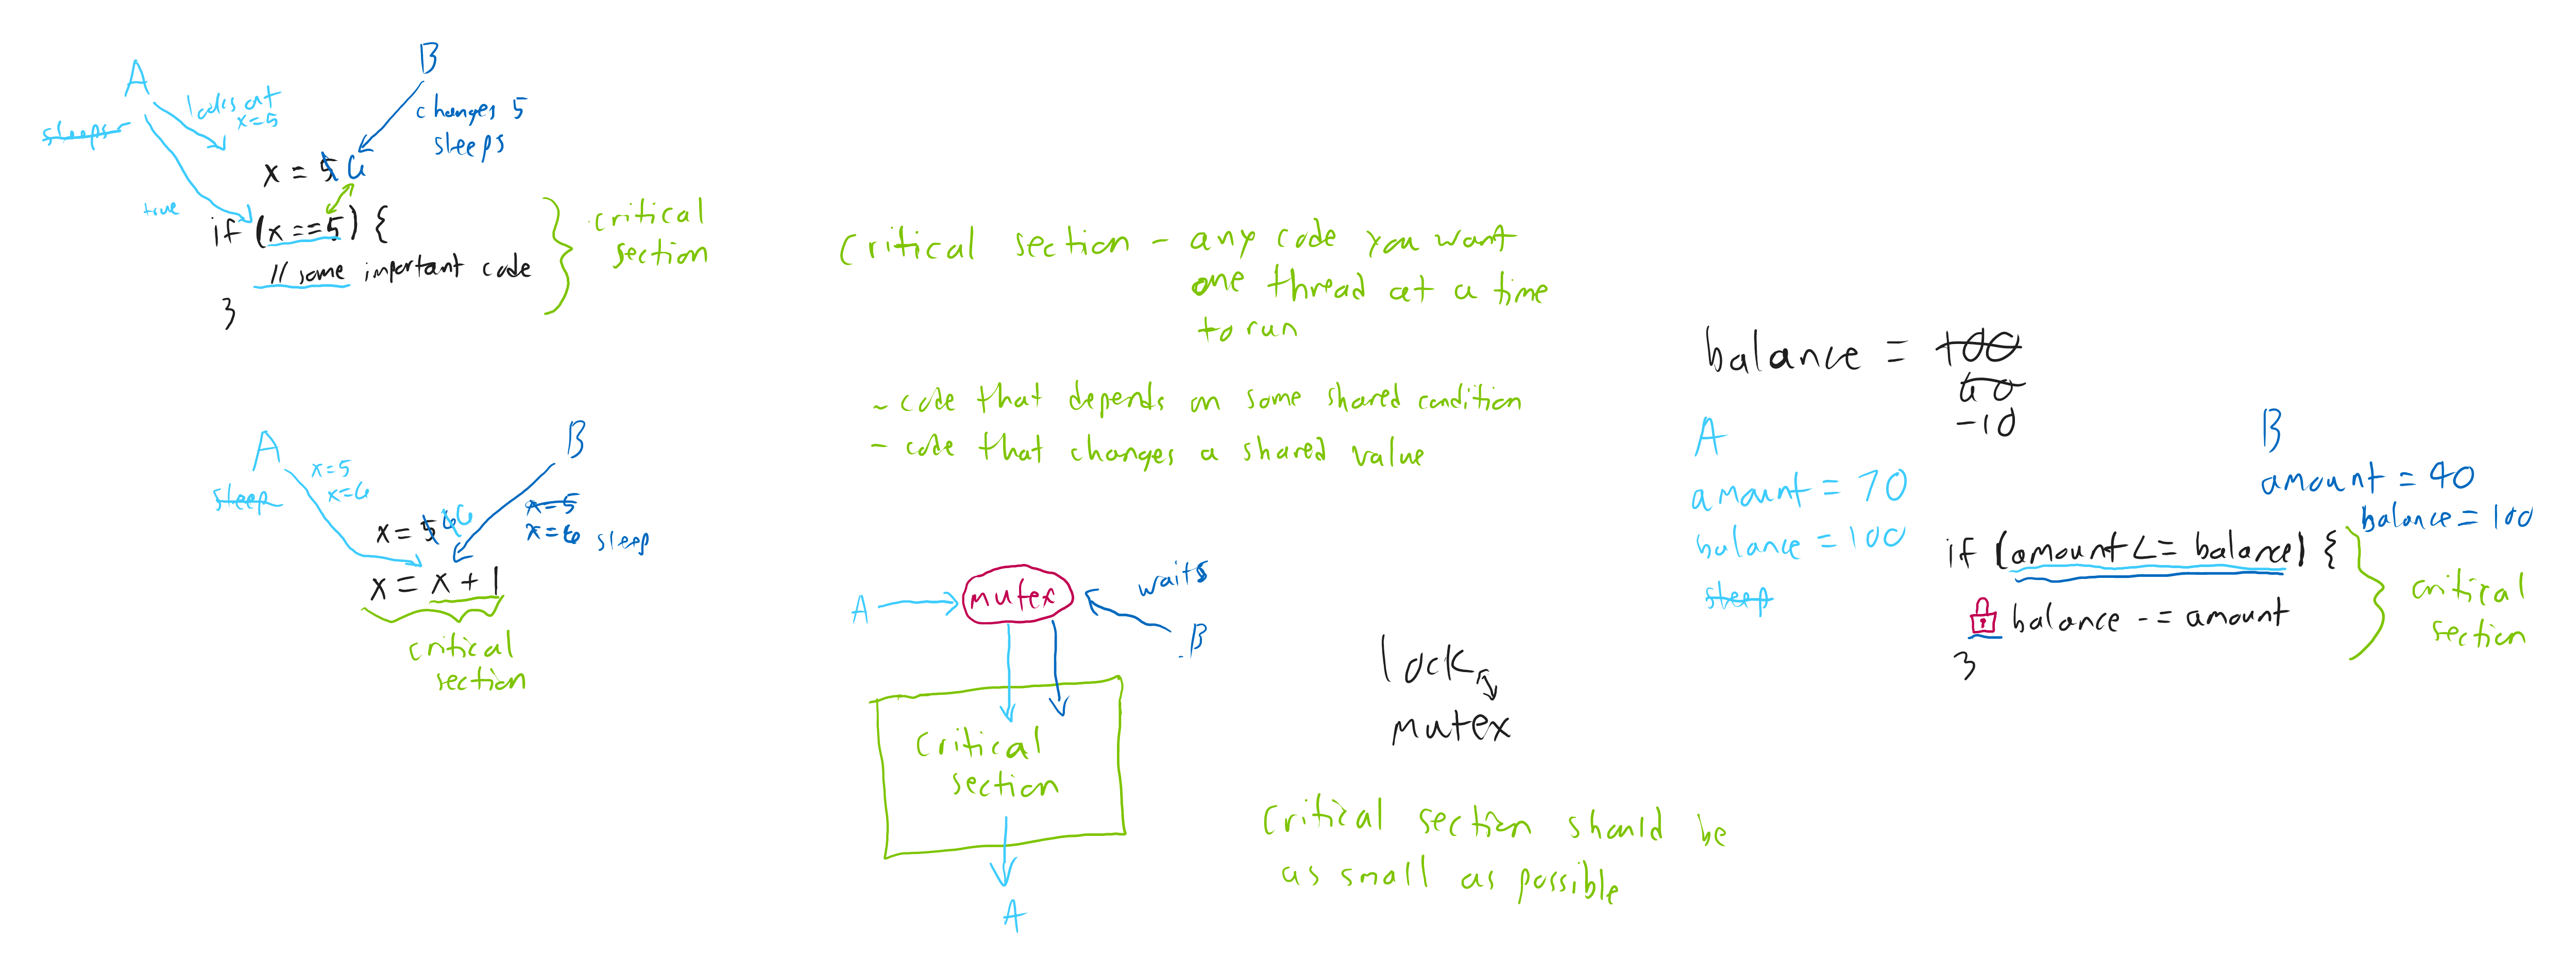 A
B
looks at
x=5
sleeps
changes 5
sleeps
x = 5 6
true
if (x==5) {
// some important code
}
critical
section
A
B
x=5
x=6
sleep
x=5
x=6 sleep
x = 5 6 6
x = x + 1
critical
section
Critical section - any code you want
one thread at a time
to run
- code that depends on some shared condition
- code that changes a shared value
A
mutex
waits
B
Critical
section
A
lock
mutex
Critical section should be
as small as possible
balance = 100
60
-10
A
amount = 70
balance = 100
sleep
B
amount = 40
balance = 100
if (amount <= balance) {
balance -= amount
}
critical
section